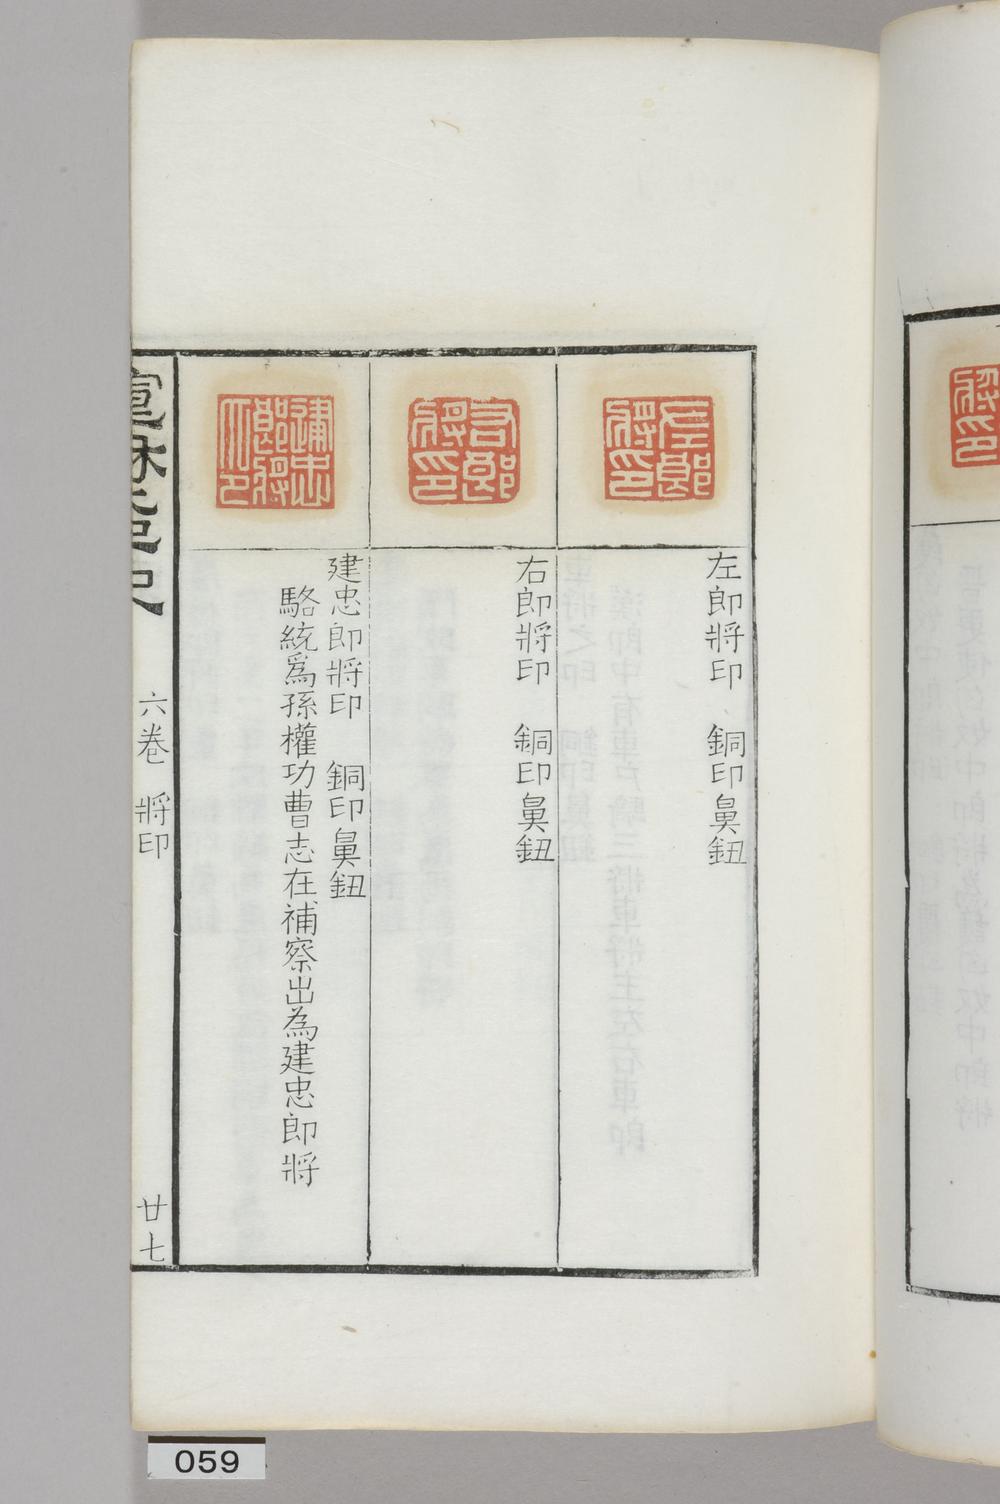 左郎將印
左郎將印　銅印鼻鈕
右郎將印
右郎將印　銅印鼻鈕
建忠郎將印
建忠郎將印　銅印鼻鈕
駱統爲孫權功曹志在補察出為建忠郎將
六卷　將印
廿七
059